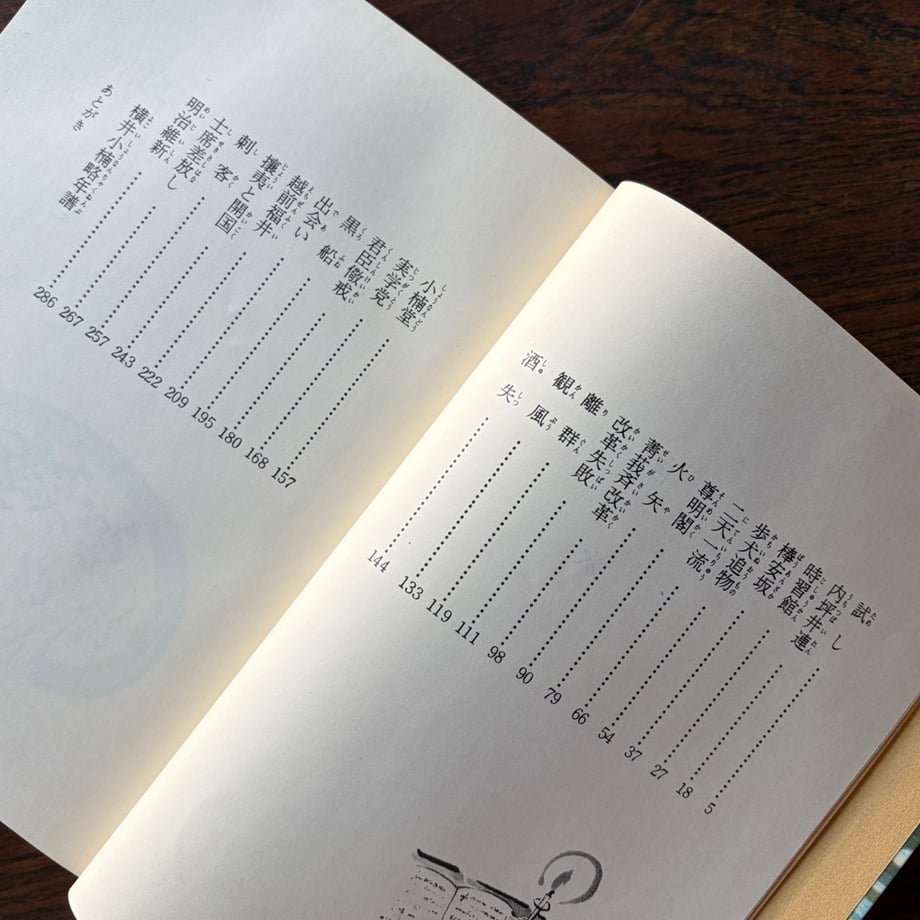 試し 5
内坪井連 18
時習館 27
棒安坂 37
歩犬追物 54
二天一流 66
尊明閣 79
火矢 90
菁莪斉改革 98
改革失敗 111
離群 119
観風 133
酒失 144
小楠堂 157
実学党 168
君臣儆戒 180
黒船 195
出会い 209
越前福井 222
攘夷と開国 243
刺客 257
士席差放し 267
明治維新 286
横井小楠略年譜
あとがき